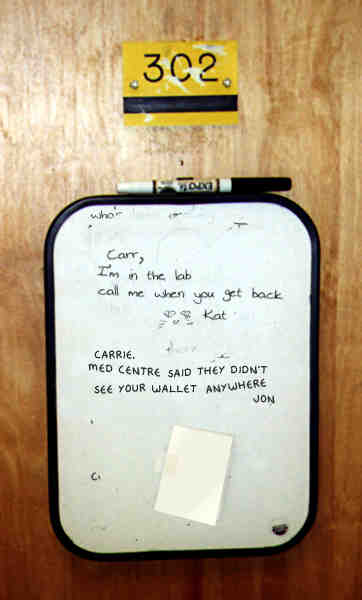 302
EXPO
who
Carr,
I'm in the lab
call me when you get back
Kat
CARRIE.
MED CENTRE SAID THEY DIDN'T
SEE YOUR WALLET ANYWHERE
JON